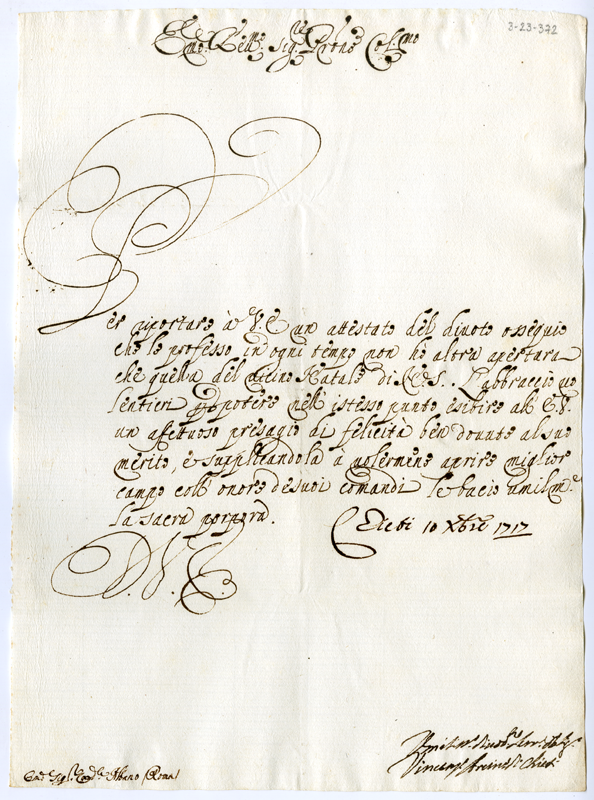 3-23-372
Em.º e Re.mo Sig.re Pr̃one Col.mo
Per riportare à V. E. un attestato del divoto ossequio
che le professo in ogni tempo non hò altra apertura
che quella del vicino Natale di N. S.. L'abbraccio vo
lentieri per potere nell'istesso punto esibire all'E. V.
un affettuoso presagio di felicità ben dovute al suo
merito, e supplicandola à volermene aprire miglior
campo coll'onore de suoi comandi le bacio umilm.e
la sacra porpora. Chieti 10 Xbre 1717
D. V. E.
Vincenzo Arciv.o di Chieti
Em.o Sig.r Card.e Albano Roma